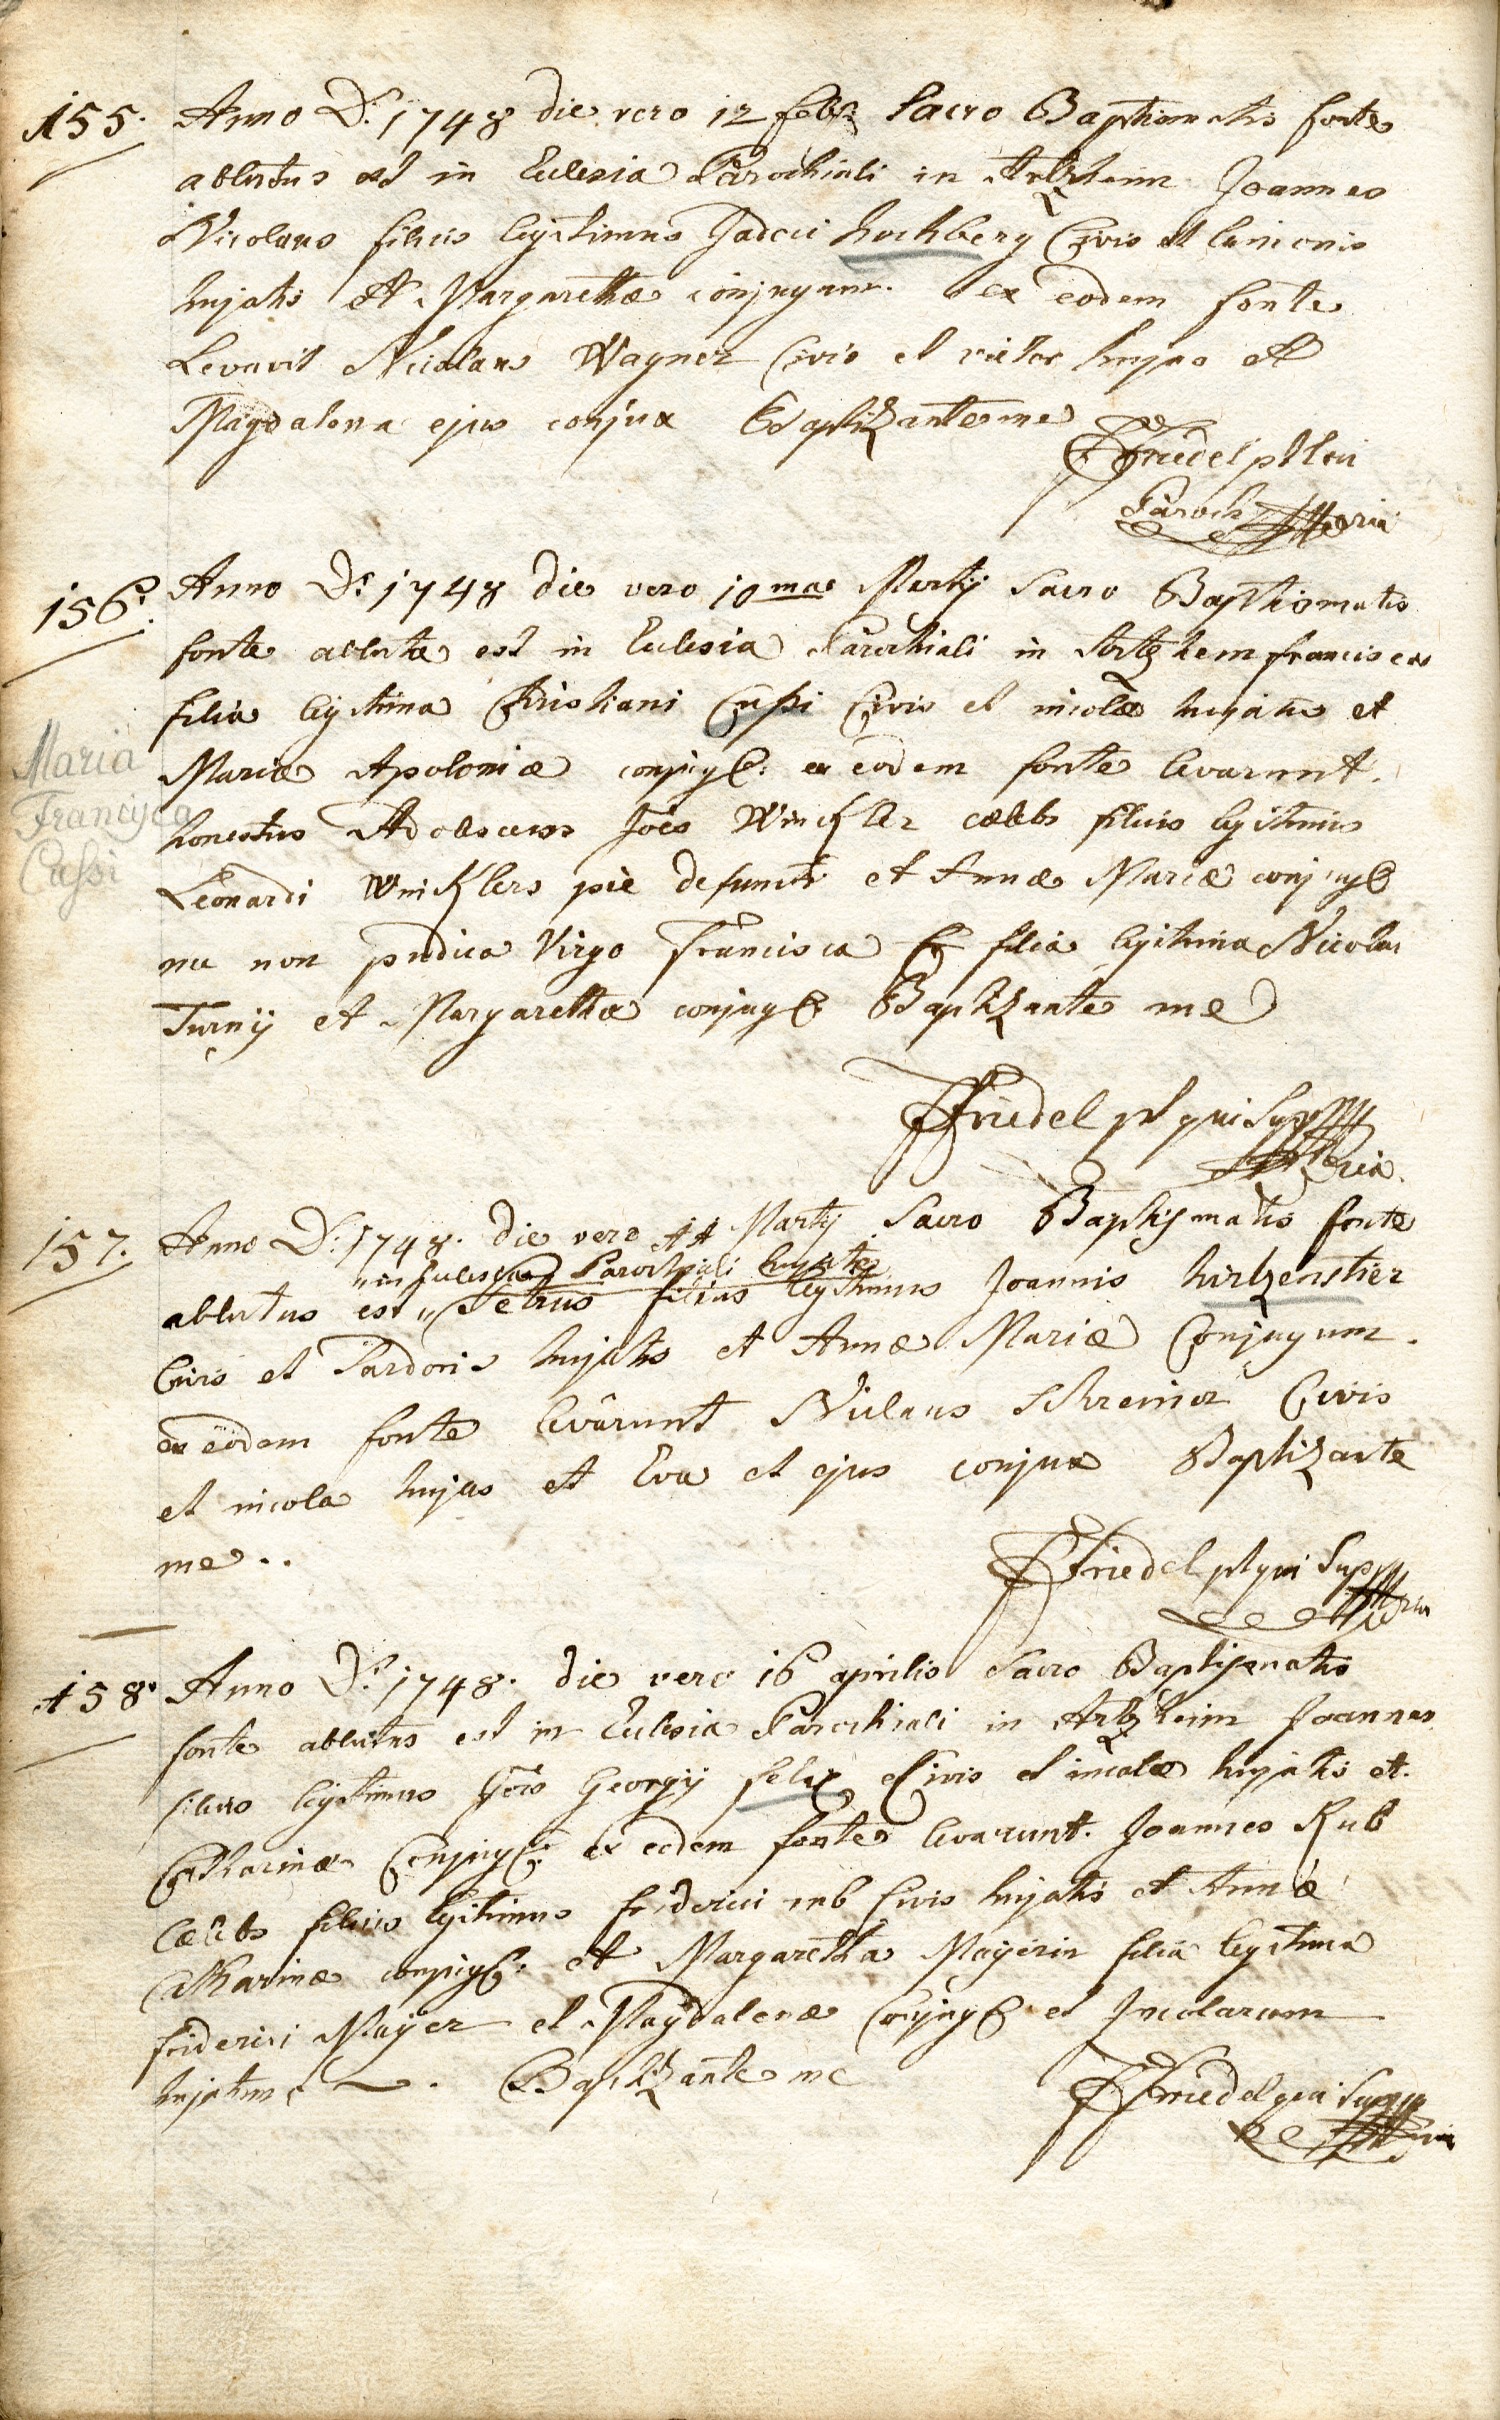 155. Anno D: 1748 die vero 12 febr Sacro Baptismatis fonte
ablutus est in Eclesia Parochiali in Artzheim Joannes
Nicolaus filius legitimus Jodoci hochberg Civis et lanionis
hujatis et Margarethæ conjugum. ex eodem fonte
Levavit Nicolaus Wagner Civis et viëtor hujas et
Magdalena ejus conjux Baptizante me
Friedel p t
Paroch
156. Anno D: 1748 die vero 10mae Martij Sacro Baptismatis
fonte abluta est in Eclesia Parochiali in Artzheim francisca
filia legitima Christiani Cussi Civis et incolæ hujatis et
Maria
Francisca
Cussi
Mariæ Apoloniæ conjug: ex eodem fonte levarunt.
honestus Adolescens Joes Winckler cælebs filius legitimus
Leonardi Wincklers pie defuncti et Annæ Mariæ conjug
nec non pudica Virgo Francisca filia legitima Nicolai
Turnij et Margarethæ conjug Baptizante me
Friedel pt qui Supra
157. Anno D: 1748. die vero 11 Martij Sacro Baptismatis fonte
in Eclesia Parochiali hujate
ablutus est Petrus filius legitimus Joannis hirtzenstier
Civis et Sardoris hujatis et Annæ Mariæ Conjugum.
ex eodem fonte levarunt Niclaus Schreiner Civis
et incola hujas et Eva et ejus conjux Baptizante
me..
Friedel pt qui Supra
158. Anno D: 1748. die vero 16 aprilis Sacro Baptismatis
fonte ablutus est in Eclesia Parochiali in Artzheim Joannes
filius legitimus Jois Georgij felix Civis et incolæ hujatis et.
Catharinæ Conjug: ex eodem fonte levarunt. Joannes Rub
Cælebs filius legitimus friderici rub Civis hujatis et Annæ
Catharinæ conjug: et Margaretha Mayerin filia legitima
friderici Mayer et Magdalenæ conjug et Incolarum
hujatum. Baptizante me
Friedel qui Supra